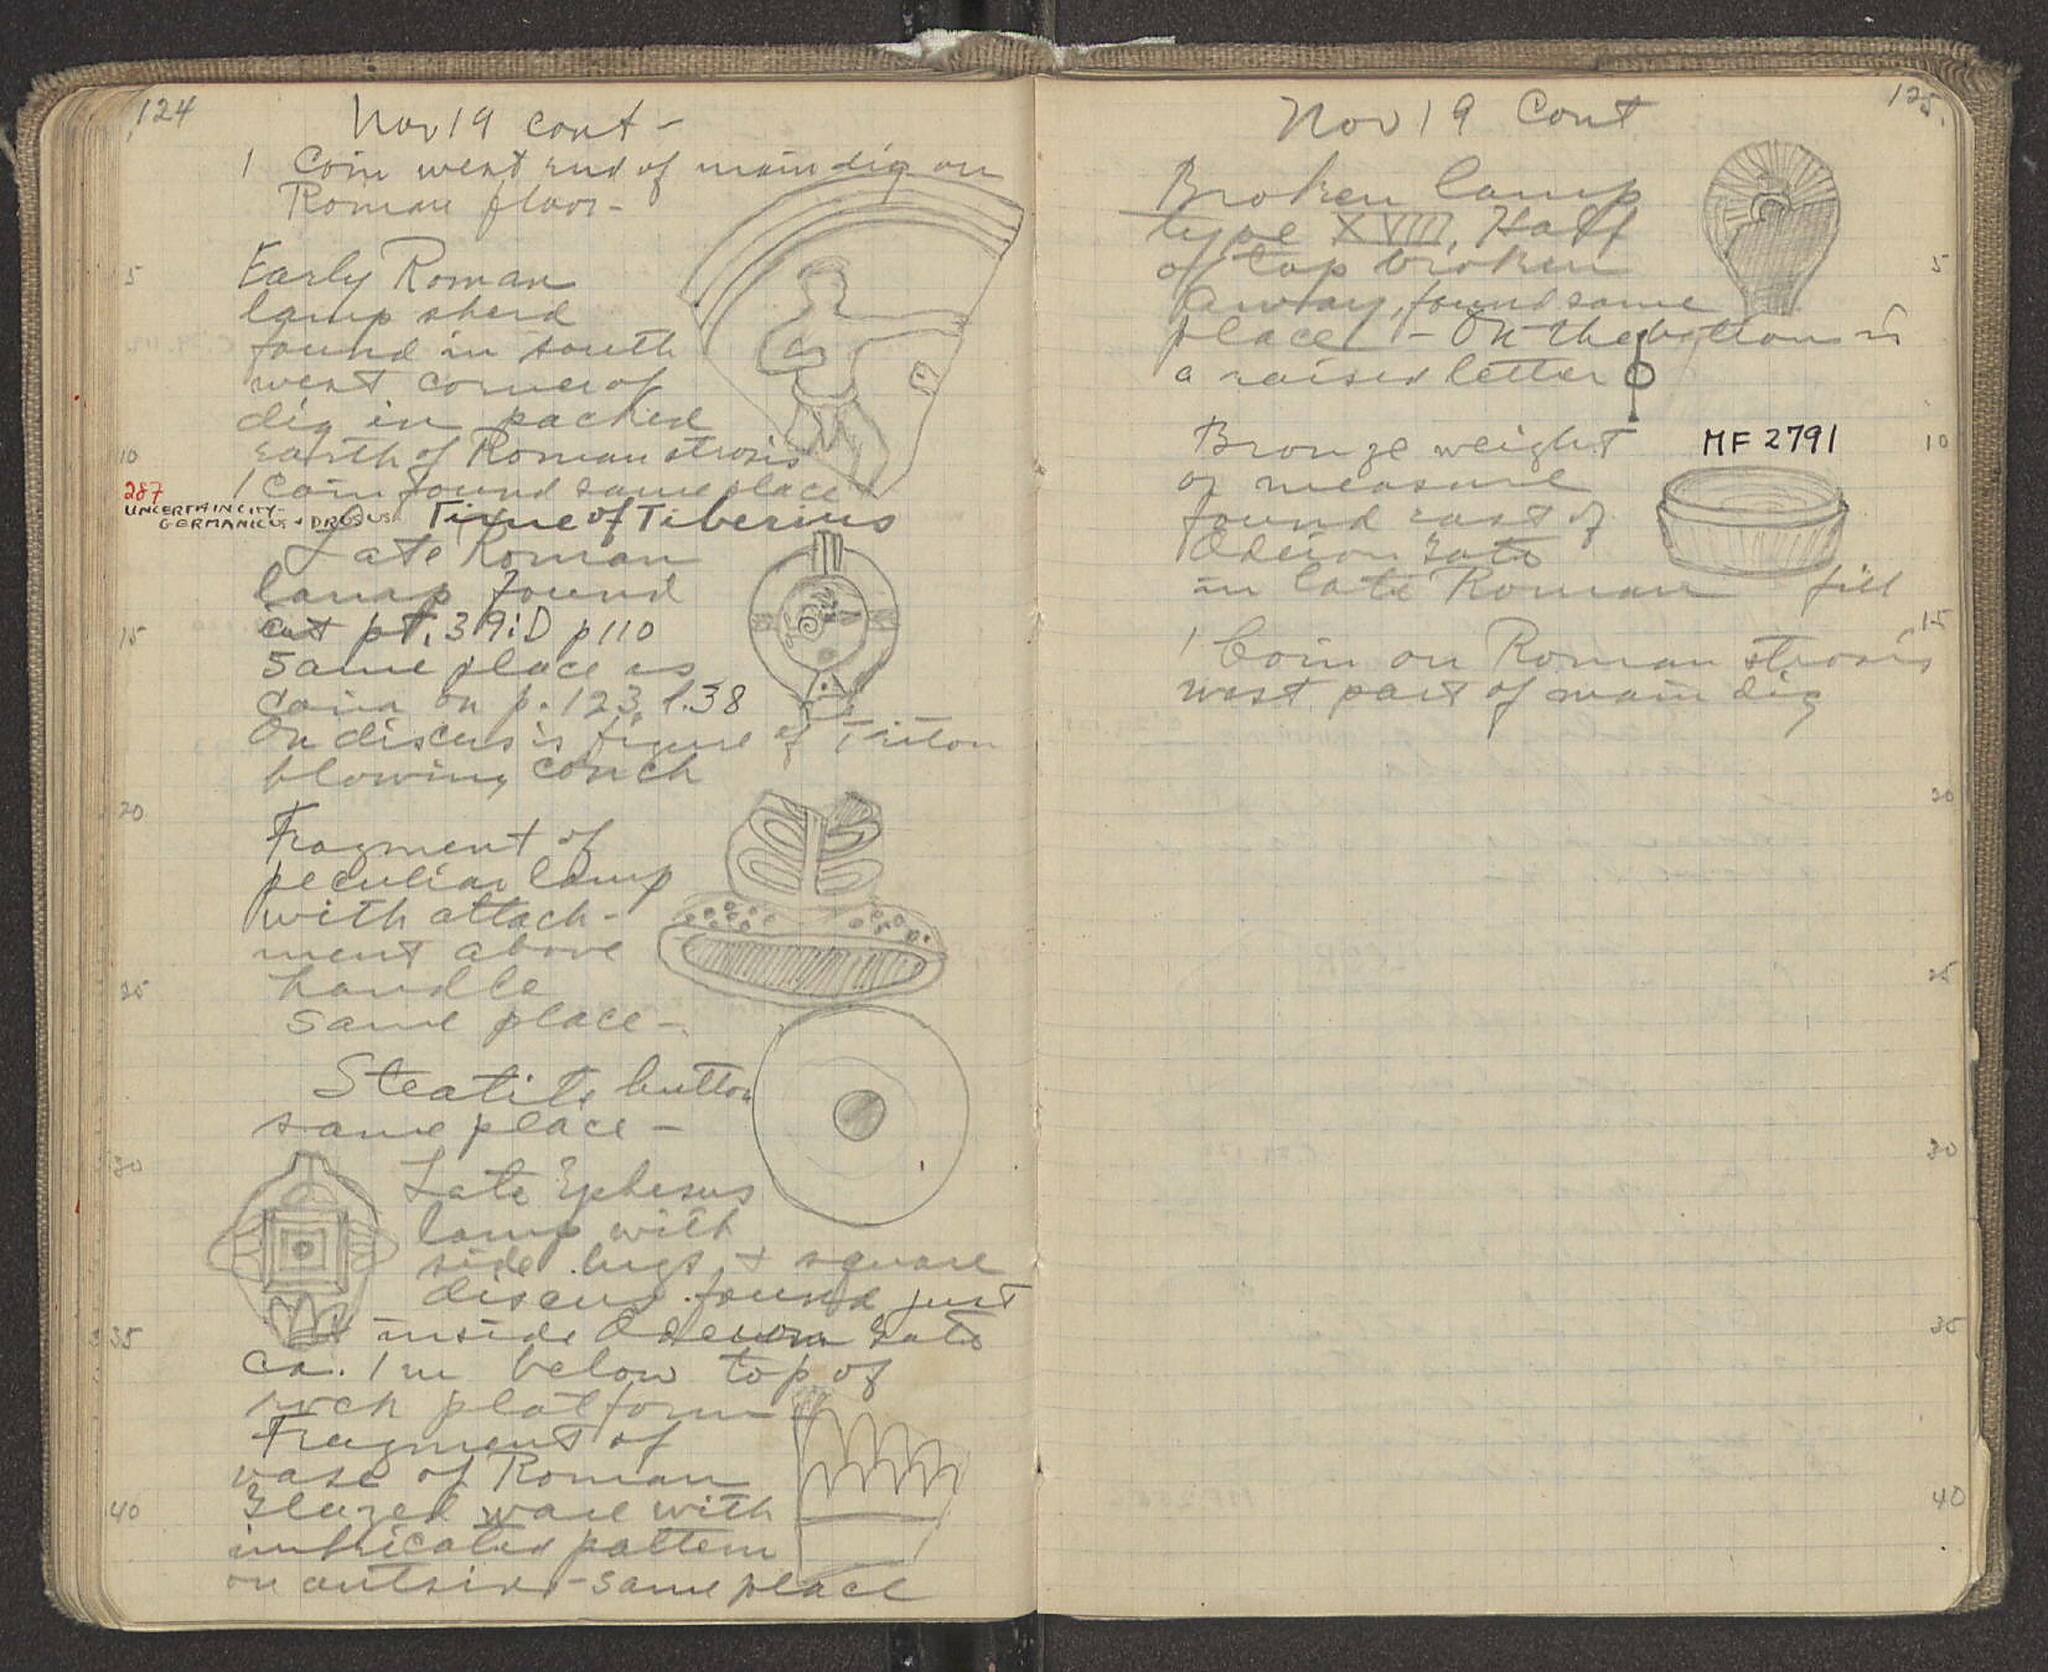 124
Nov 19 cont -
1 Coin west end of main dig on
Roman floor -
Early Roman
5
lamp sherd
found in south
west corner of
dig in packed
10
earth of Roman strosis
1 Coin found same place
287
UNCERTAIN CITY-
GERMANICUS + DRUSUS
Time of Tiberius
Late Roman
lamp found
15
cut pt. 39:D p110
same place as
coin on p. 123 l. 38
On discus is figure of Triton
blowing conch
20
Fragment of
peculiar lamp
with attach-
ment above
25
handle
same place -
Steatite button
same place -
30
Late Ephesus
lamp with
side lugs + square
discus found just
35
inside Odeion Gate
ca. 1m below top of
rock platform -
Fragment of
vase of Roman
40
Glazed ware with
imbricated pattern
on outside - same place
125.
Nov 19 Cont
Broken lamp
type XVIII, Half
5
of top broken
away, found same
place - On the bottom is
a raised letter ϕ
10
Bronze weight
MF 2791
or measure
found east of
Odeion Gate
in late Roman fill
15
1 Coin on Roman strosis
west part of main dig
20
25
30
35
40